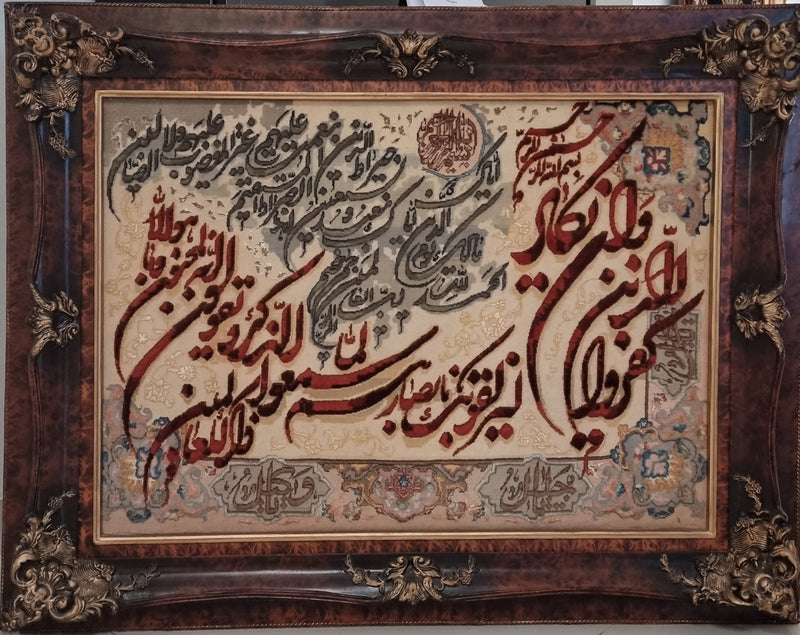 بسم الله الرحمن الرحیم
وان یکاد
الذین
کفروا
لیزلقونک بابصارهم
لما سمعوا
الذکر و یقولون
انه لمجنون و ما هو الا
ذکر للعالمین
بسم الله الرحمن الرحیم
الحمد لله رب العالمین
الرحمن الرحیم
مالک یوم الدین
ایاک نعبد و ایاک نستعین
اهدنا الصراط المستقیم
صراط الذین انعمت علیهم غیر المغضوب علیهم ولا الضالین